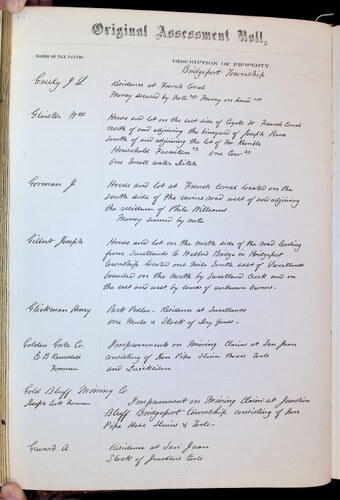 Original Assessment Roll,
NAMES OF TAX PAYERS
DESCRIPTION OF PROPERTY.
Bridgeport Township
Greely J L
Residence at French Corral
Money secured by Note Money on hand
Gleister Wm
House and lot on the east side of Coyote St. French Corral
north of and adjoining the vineyard of Joseph
south of and adjoining the lot of Mr Kemble
Household Furniture one Cow
one Small water Ditch
Gorman J
House and lot at French Corral located on the
South side of the road west of and adjoining
the residence of Philo Williams
Money secured by note
Gilbert Joseph
House and lot on the north side of the road leading
from Sweetlands to Webbers Bridge in Bridgeport
Township located one mile South east of Sweetlands
bounded on the north by Sweetland Creek and on
the east and west by lands of unknown owners.
Glickman Henry
Pack Pedler - Residence at Sweetlands
one Mule & Stock of Dry goods -
Golden Gate Co
E B
Foreman
Improvements on Mining Claims at San Juan
consisting of Iron Pipe Sluice Boxes Tools
and Quicksilver
Gold Bluff Mining Co
Joseph Foreman
Improvement on Mining Claim at Junction
Bluff Bridgeport Township consisting of Iron
Pipe Hose Sluices & Tools -
Gavard A
Residence at San Juan
Stock of Jewelers tools